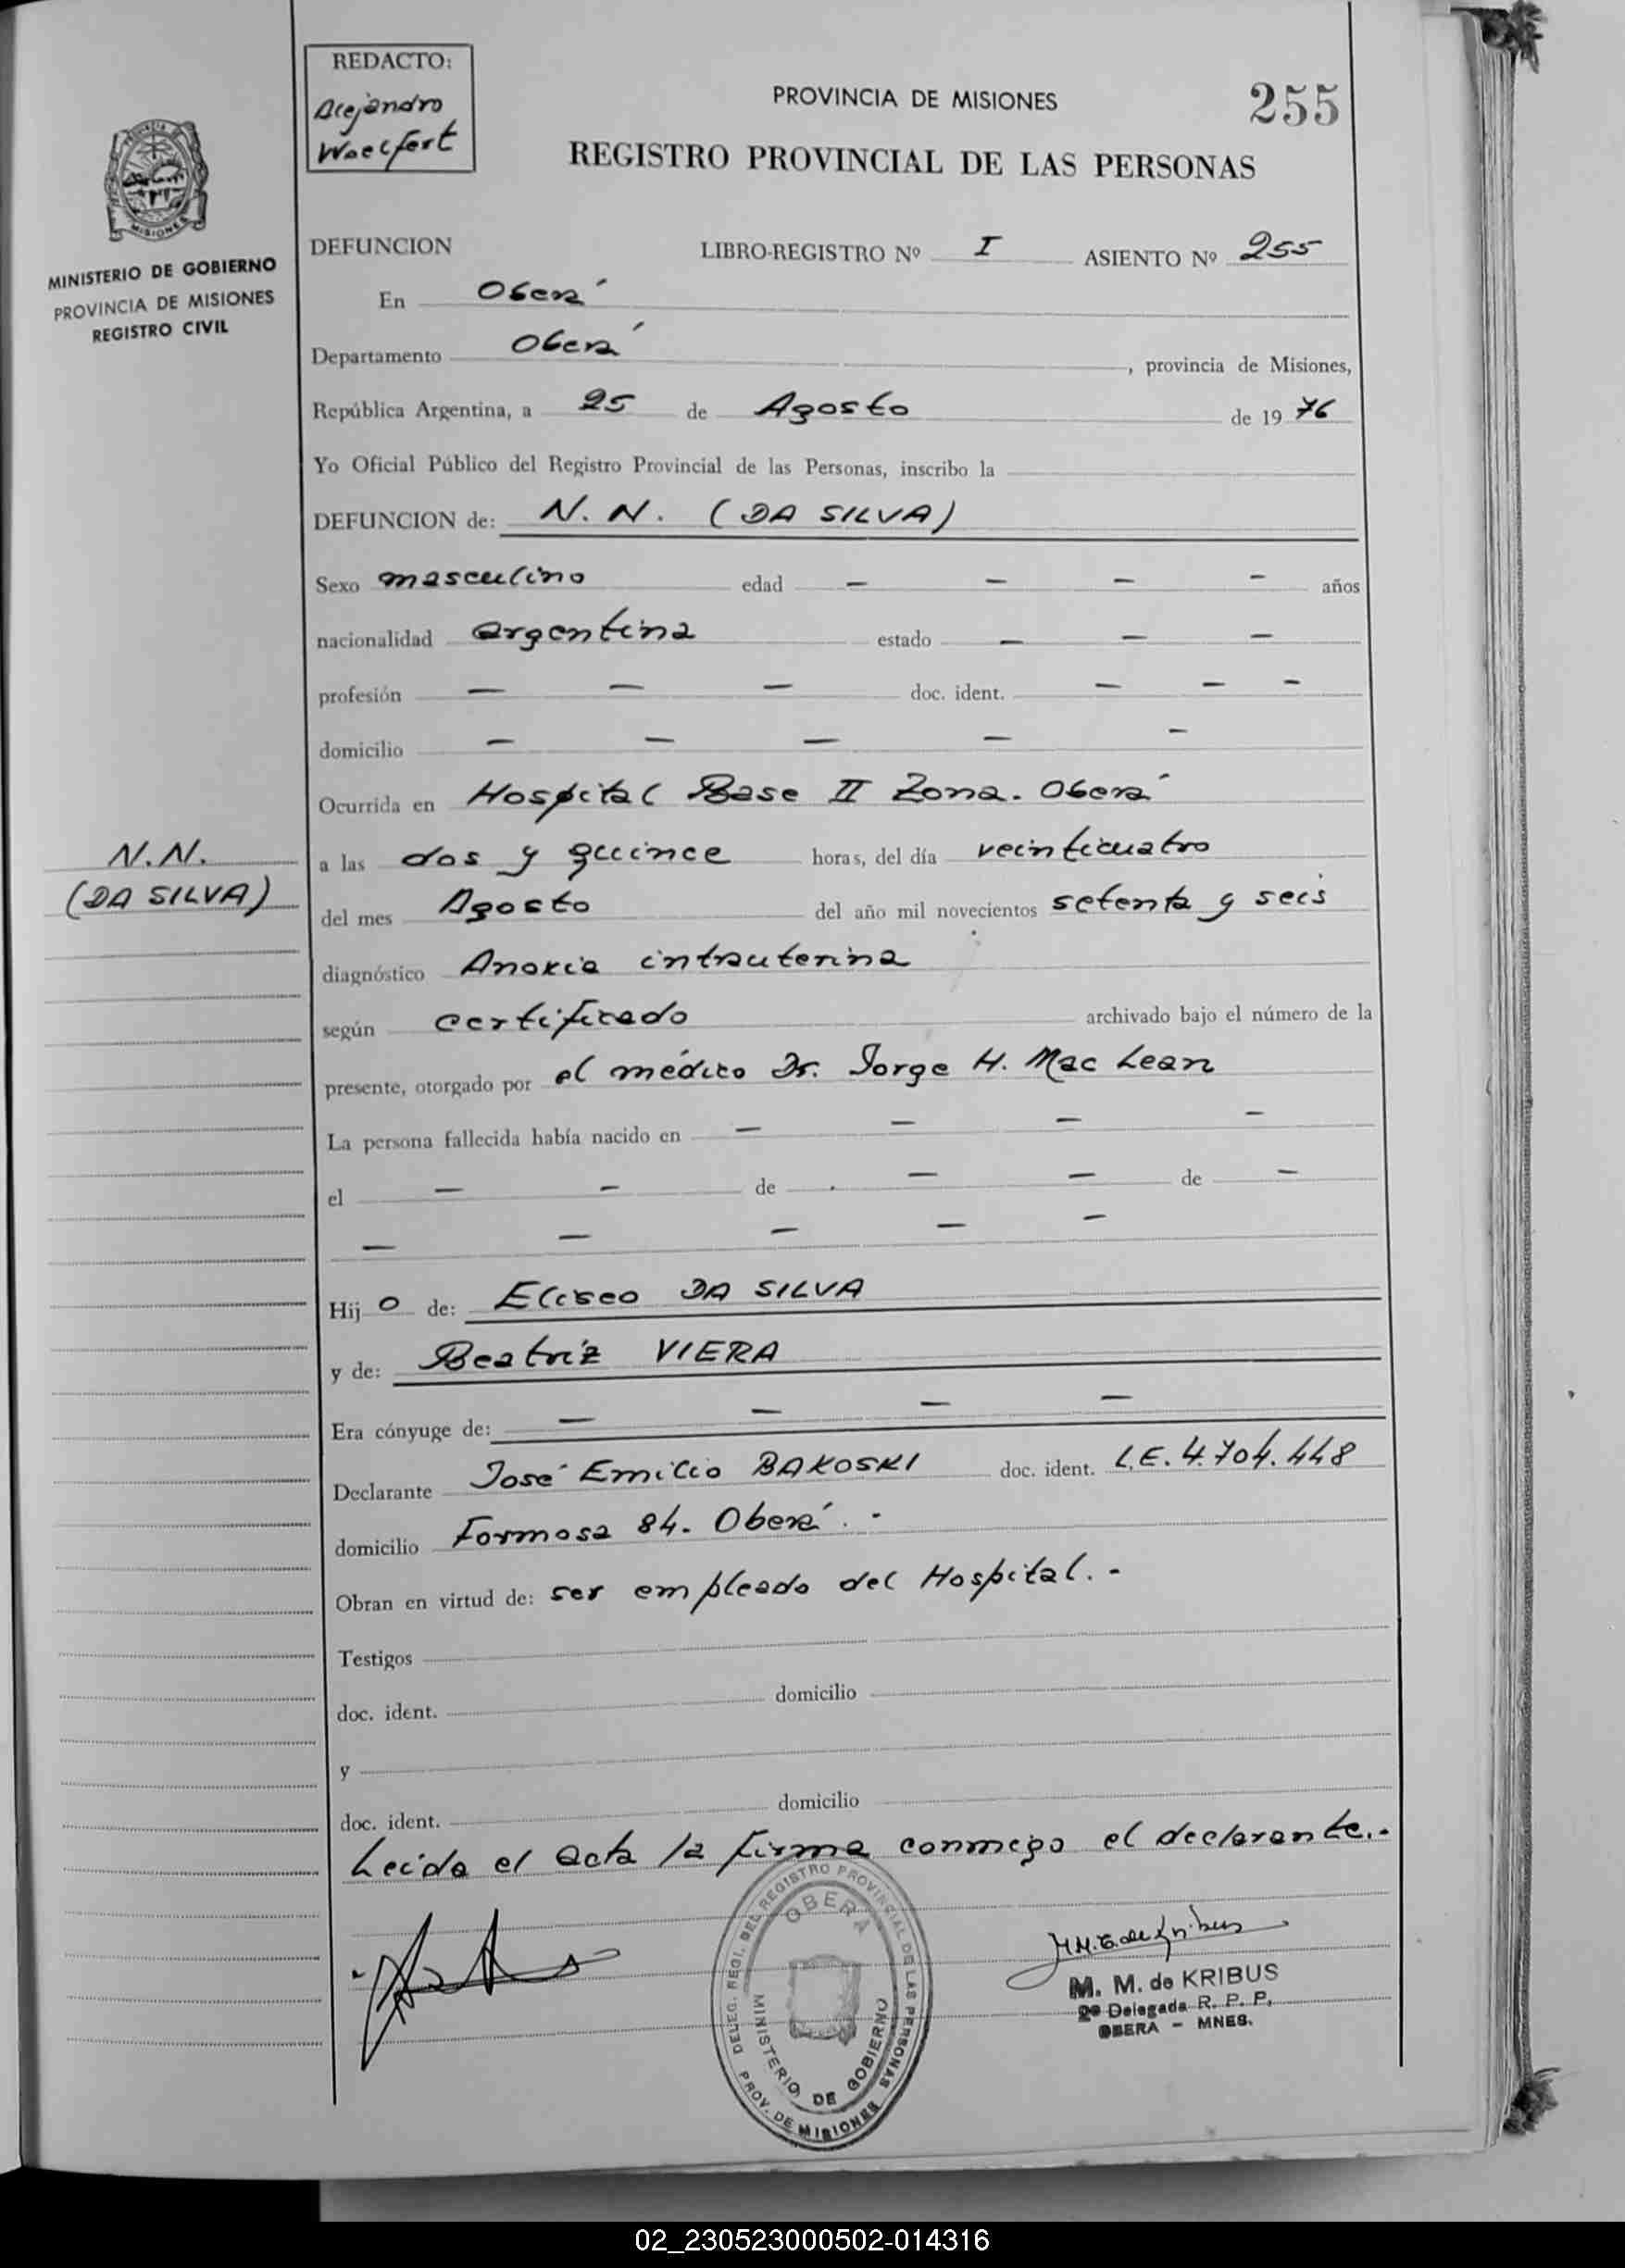 REDACTO:
Alejandro
Woelfert
PROVINCIA DE MISIONES
255
REGISTRO PROVINCIAL DE LAS PERSONAS
MISIONES
MINISTERIO DE GOBIERNO
PROVINCIA DE MISIONES
REGISTRO CIVIL
DEFUNCION LIBRO-REGISTRO Nº I ASIENTO Nº 255
En Oberá
Departamento Oberá, provincia de Misiones,
República Argentina, a 25 de Agosto de 1976
Yo Oficial Público del Registro Provincial de las Personas, inscribo la
DEFUNCION de: N. N. (DA SILVA)
Sexo masculino edad — — — — años
nacionalidad argentina estado — — —
profesión — — — doc. ident. — — —
domicilio — — — — —
Ocurrida en Hospital Base II Zona. Oberá
N.N.
(DA SILVA)
a las dos y quince horas, del día veinticuatro
del mes Agosto del año mil novecientos setenta y seis
diagnóstico Anoxia intrauterina
según certificado archivado bajo el número de la
presente, otorgado por el médico Dr. Jorge H. Mac Lean
La persona fallecida había nacido en — — — —
el — — de — — de —
— — — — —
Hijo de: Eliseo DA SILVA
y de: Beatriz VIERA
Era cónyuge de: — — — —
Declarante José Emilio BAKOSKI doc. ident. L.E. 4.704.448
domicilio Formosa 84. Oberá. -
Obran en virtud de: ser empleado del Hospital. -
Testigos
doc. ident. domicilio
y
doc. ident. domicilio
Leida el acta la firma conmigo el declarante.-
DELEG. REGI. DEL REGISTRO PROVINCIAL DE LAS PERSONAS
OBERA
MINISTERIO DE GOBIERNO
PROV. DE MISIONES
M. M. de KRIBUS
2º Delegada R. P. P.
OBERA - MNES.
02_230523000502-014316